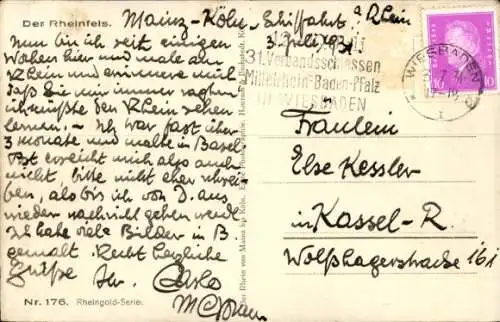 Der Rheinfels. Mainz-Köln-Schiffahrt a/Rhein
3. Juli 1931
Nun bin ich seit einigen
Wochen hier und male am
Rhein und erinnere mich
daß Sie mir immer sagten
ich müßte den Rhein sehen
lernen. – Ich war fast über
3 Monate und malte in Basel.
Post erreicht mich also auch
nicht, bitte nicht eher schrei-
ben, als bis ich von D. aus
wieder nachricht geben werde
Ich habe viele Bilder in B.
gemalt. Recht herzliche
Grüße Ihr Carlo
Nr. 176. Rheingold-Serie.
31. Verbandsschiessen
Mittelrhein-Baden-Pfalz
in WIESBADEN
WIESBADEN
Fräulein
Else Kessler
in Kassel-R.
Wolfshagerstrasse 161